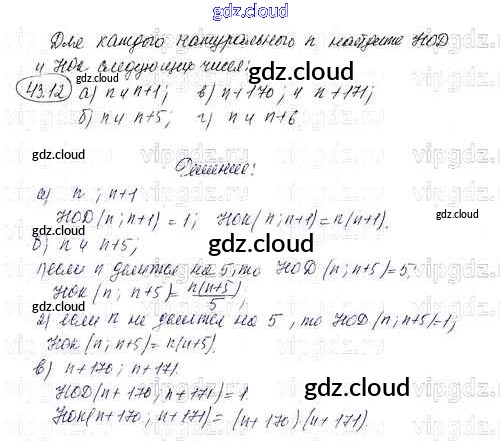 gdz.cloud
Для каждого натурального n найдите НОД
и НОК следующих чисел:
gdz.cloud
43.12 а) n и n+1; в) n+170; и n+171;
б) n и n+5; г) n и n+6
gdz.cloud
gdz.cloud
Решение:
gdz.cloud
а) n ; n+1
НОД(n; n+1) = 1; НОК(n; n+1) = n(n+1).
gdz.cloud
б) n и n+5;
1) если n делится на 5, то НОД (n; n+5) = 5;
НОК (n; n+5) = n(n+5)/5;
gdz.cloud
gdz.cloud
2) если n не делится на 5, то НОД (n; n+5)=1;
НОК (n; n+5) = n(n+5).
в) n+170; n+171.
gdz.cloud
НОД(n+170; n+171) = 1
gdz.cloud
НОК(n+170; n+171) = (n+170)(n+171).